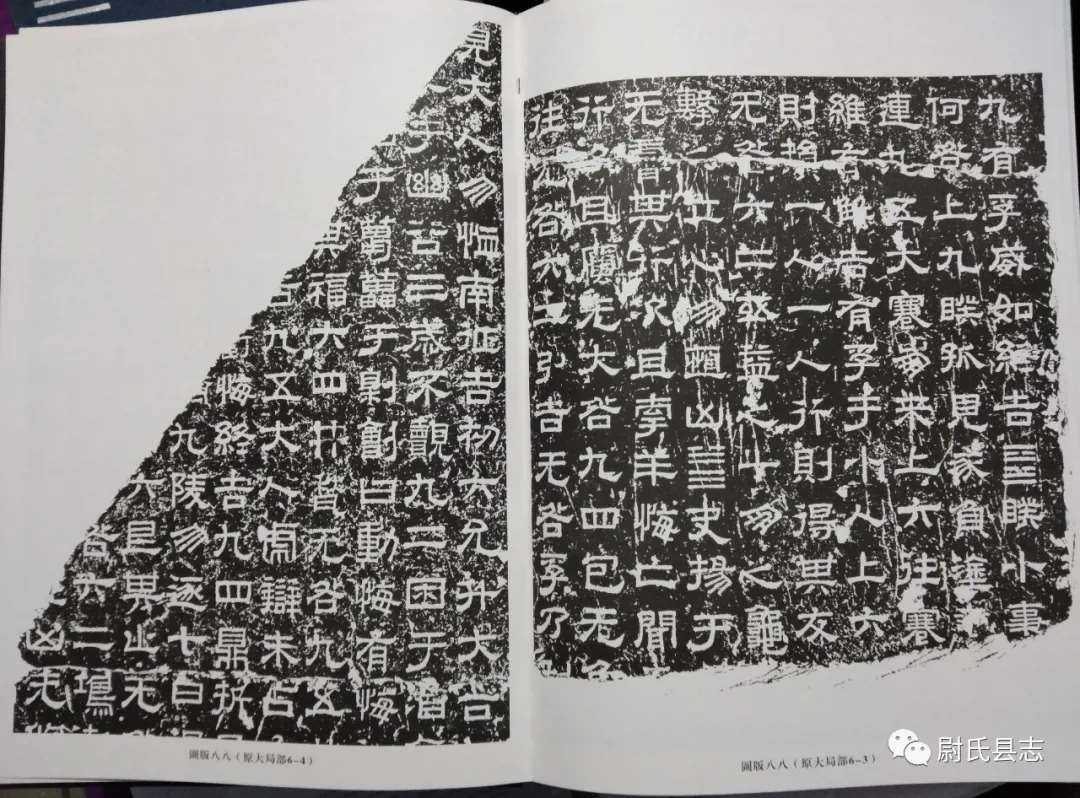 九有孚威如終吉䷥睽小事
何咎上九睽孤見豕負塗
連九五大蹇朋来上六往蹇
維有解吉有孚于小人上六
財損一人一人行則得其友
无咎六二或益之十朋之龜
擊之立心勿恒凶䷪夬揚于
无膚其行次且牽羊悔亡聞
行次且厲无大咎九四包无魚
往无咎六二引吉无咎孚乃
圖版八八（原大局部6-3）
見大人勿恤南征吉初六允升大吉
于幽谷三歲不覿九二困于酒
于葛藟于劓劊曰動悔有悔
其福六四井无咎九五
吉九五大人虎辯未占
悔終吉九四鼎折
九陵勿逐七日
六艮其止无
咎六二鴻
凶无
圖版八八（原大局部6-4）
尉氏县志